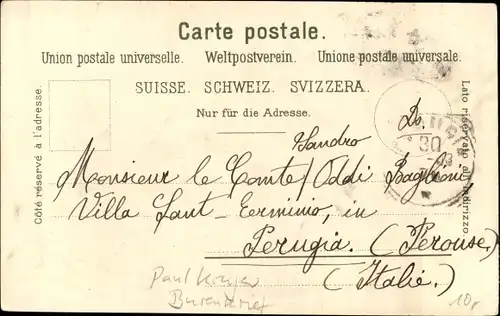 Carte postale.
Union postale universelle. Weltpostverein. Unione postale universale.
SUISSE. SCHWEIZ. SVIZZERA.
Nur für die Adresse.
Côté réservé à l'adresse.
Lato riservato all'indirizzo
30
Sandro
Monsieur le Comte/Oddi Baglioni
Villa Sant-Erminio, in
Perugia. (Perouse.)
(Italie.)
Paul Krüger
10,-